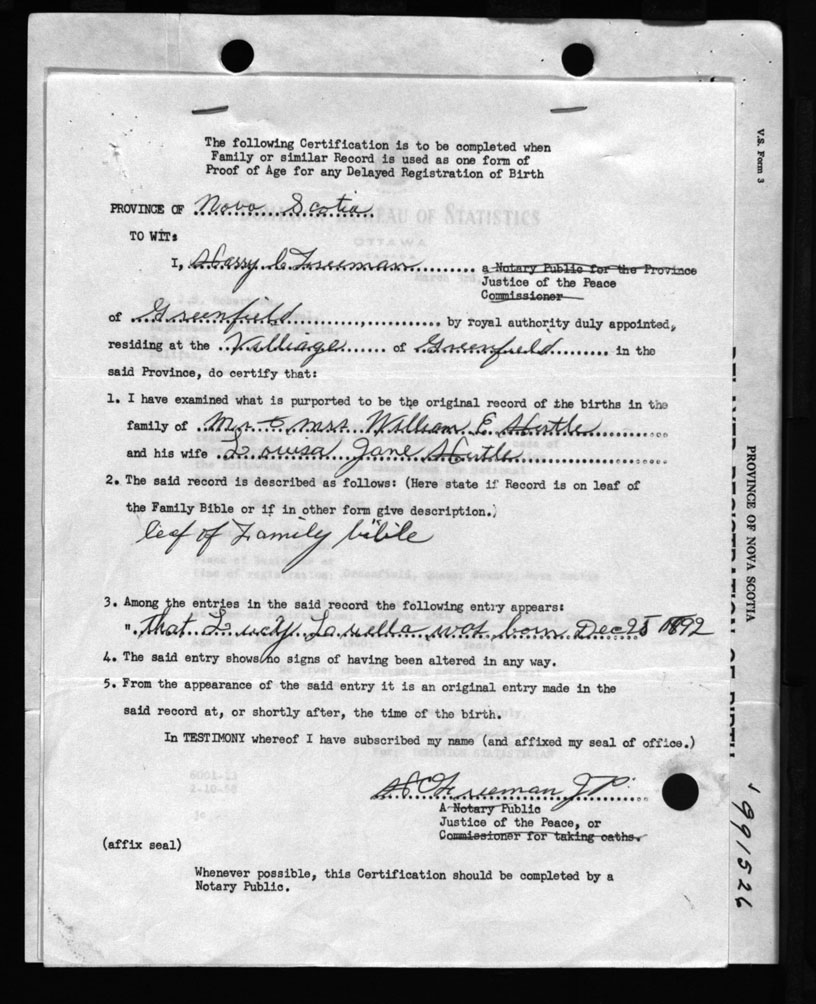 The following Certification is to be completed when
Family or similar Record is used as one form of
Proof of Age for any Delayed Registration of Birth
PROVINCE OF Nova Scotia
TO WIT:
I, Harry C Freeman a Notary Public for the Province
Justice of the Peace
Commissioner
of Greenfield by royal authority duly appointed,
residing at the Villiage of Greenfield in the
said Province, do certify that:
1. I have examined what is purported to be the original record of the births in the
family of Mr & Mrs William E Hirtle
and his wife Lovisa Jane Hirtle
2. The said record is described as follows: (Here state if Record is on leaf of
the Family Bible or if in other form give description.)
leaf of Family bibile
3. Among the entries in the said record the following entry appears:
" That Lucy Larella was born Dec 25 1892
4. The said entry shows no signs of having been altered in any way.
5. From the appearance of the said entry it is an original entry made in the
said record at, or shortly after, the time of the birth.
In TESTIMONY whereof I have subscribed my name (and affixed my seal of office.)
H C Freeman J P.
A Notary Public
Justice of the Peace, or
Commissioner for taking oaths.
(affix seal)
Whenever possible, this Certification should be completed by a
Notary Public.
V.S. Form 3
PROVINCE OF NOVA SCOTIA
991526
BUREAU OF STATISTICS
OTTAWA